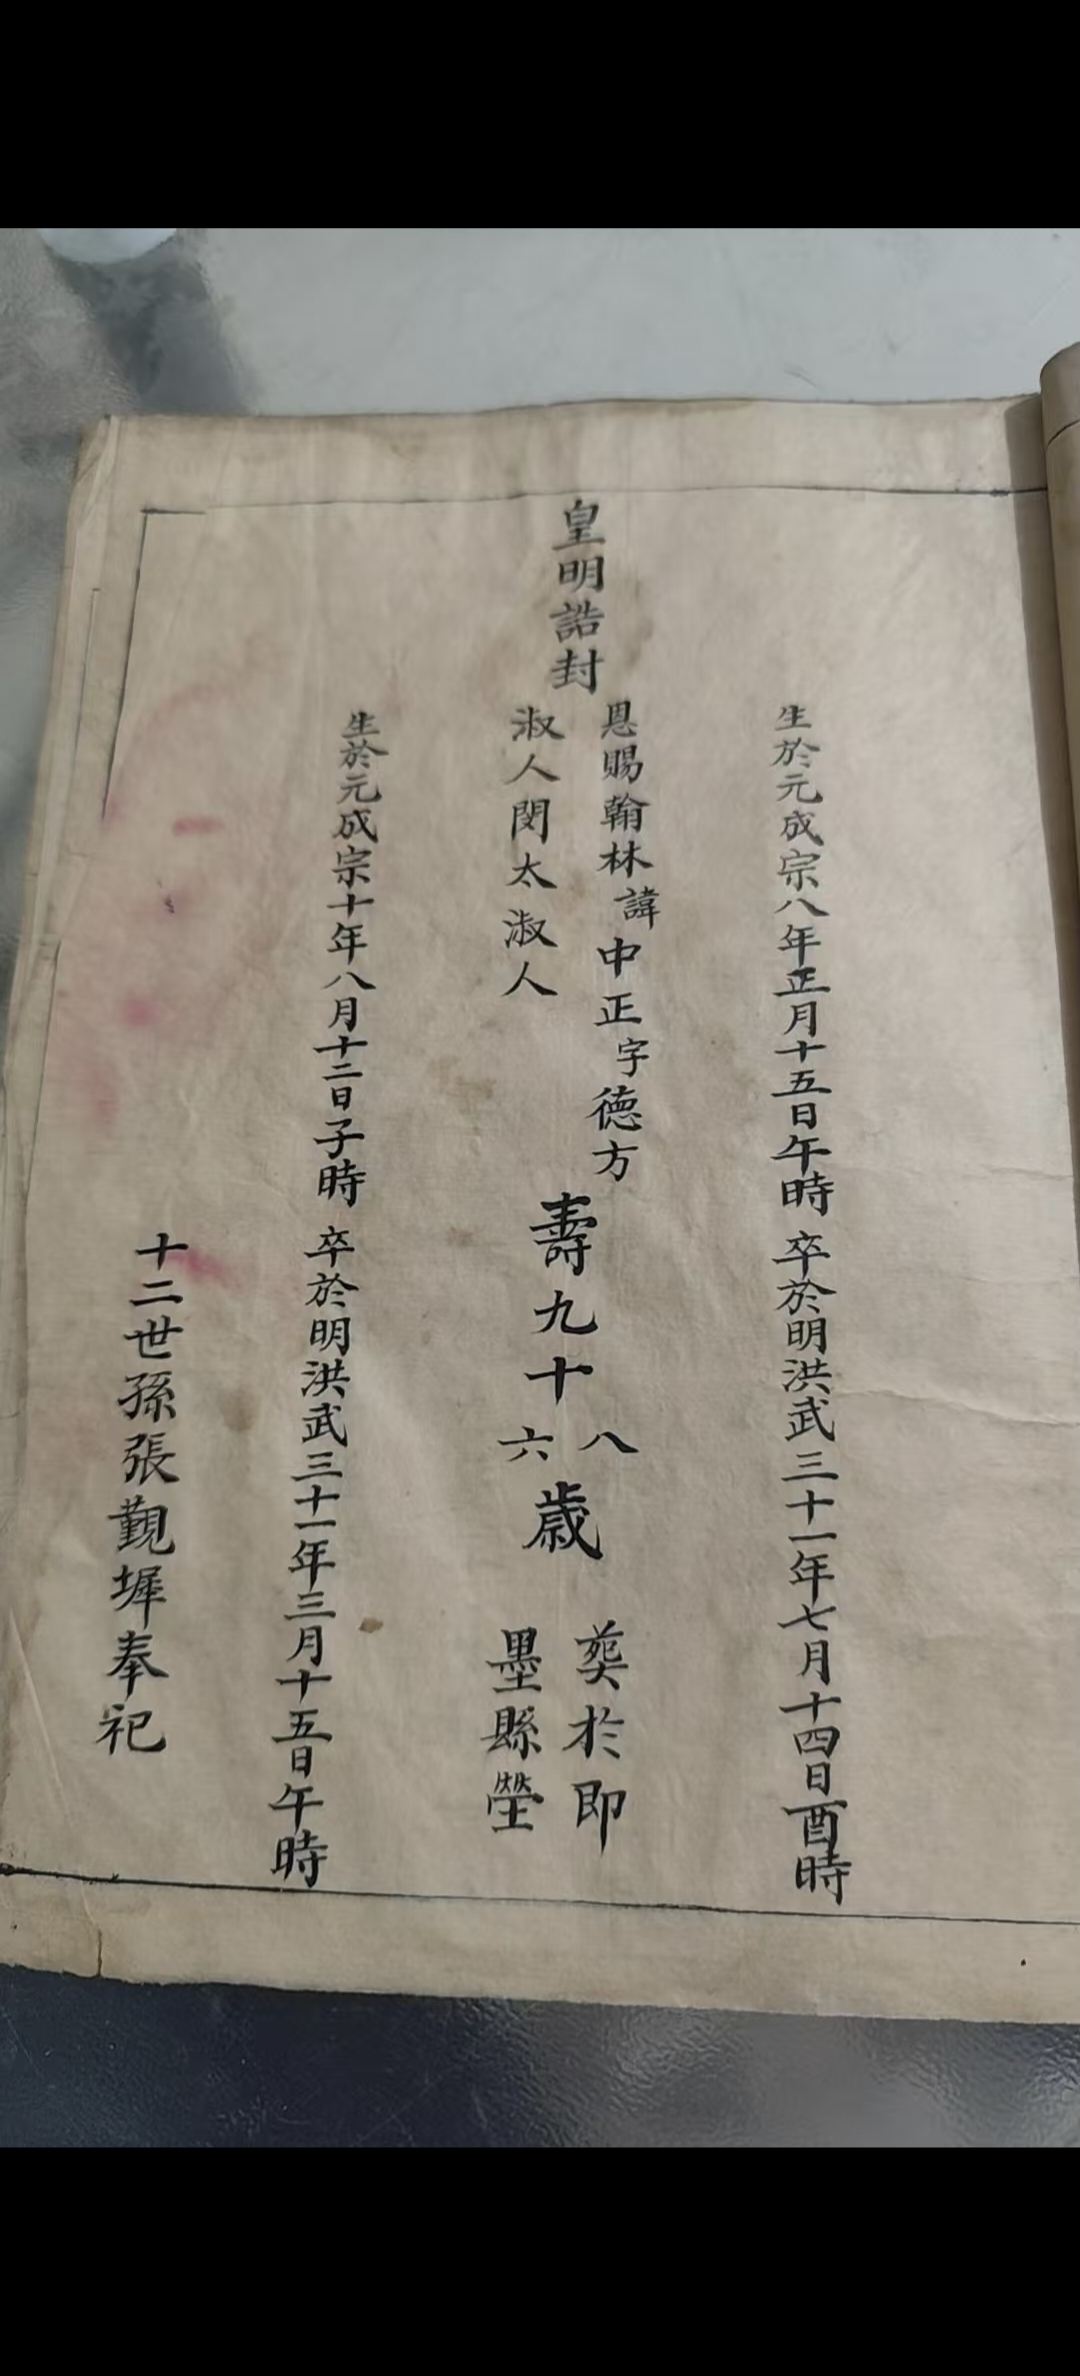 生於元成宗八年正月十五日午時 卒於明洪武三十一年七月十四日酉時
皇明誥封
恩賜翰林諱中正字德方
淑人閔太淑人
壽九十
八
六
歲
葬於即
墨縣塋
生於元成宗十年八月十二日子時 卒於明洪武三十一年三月十五日午時
十二世孫張觀墀奉祀